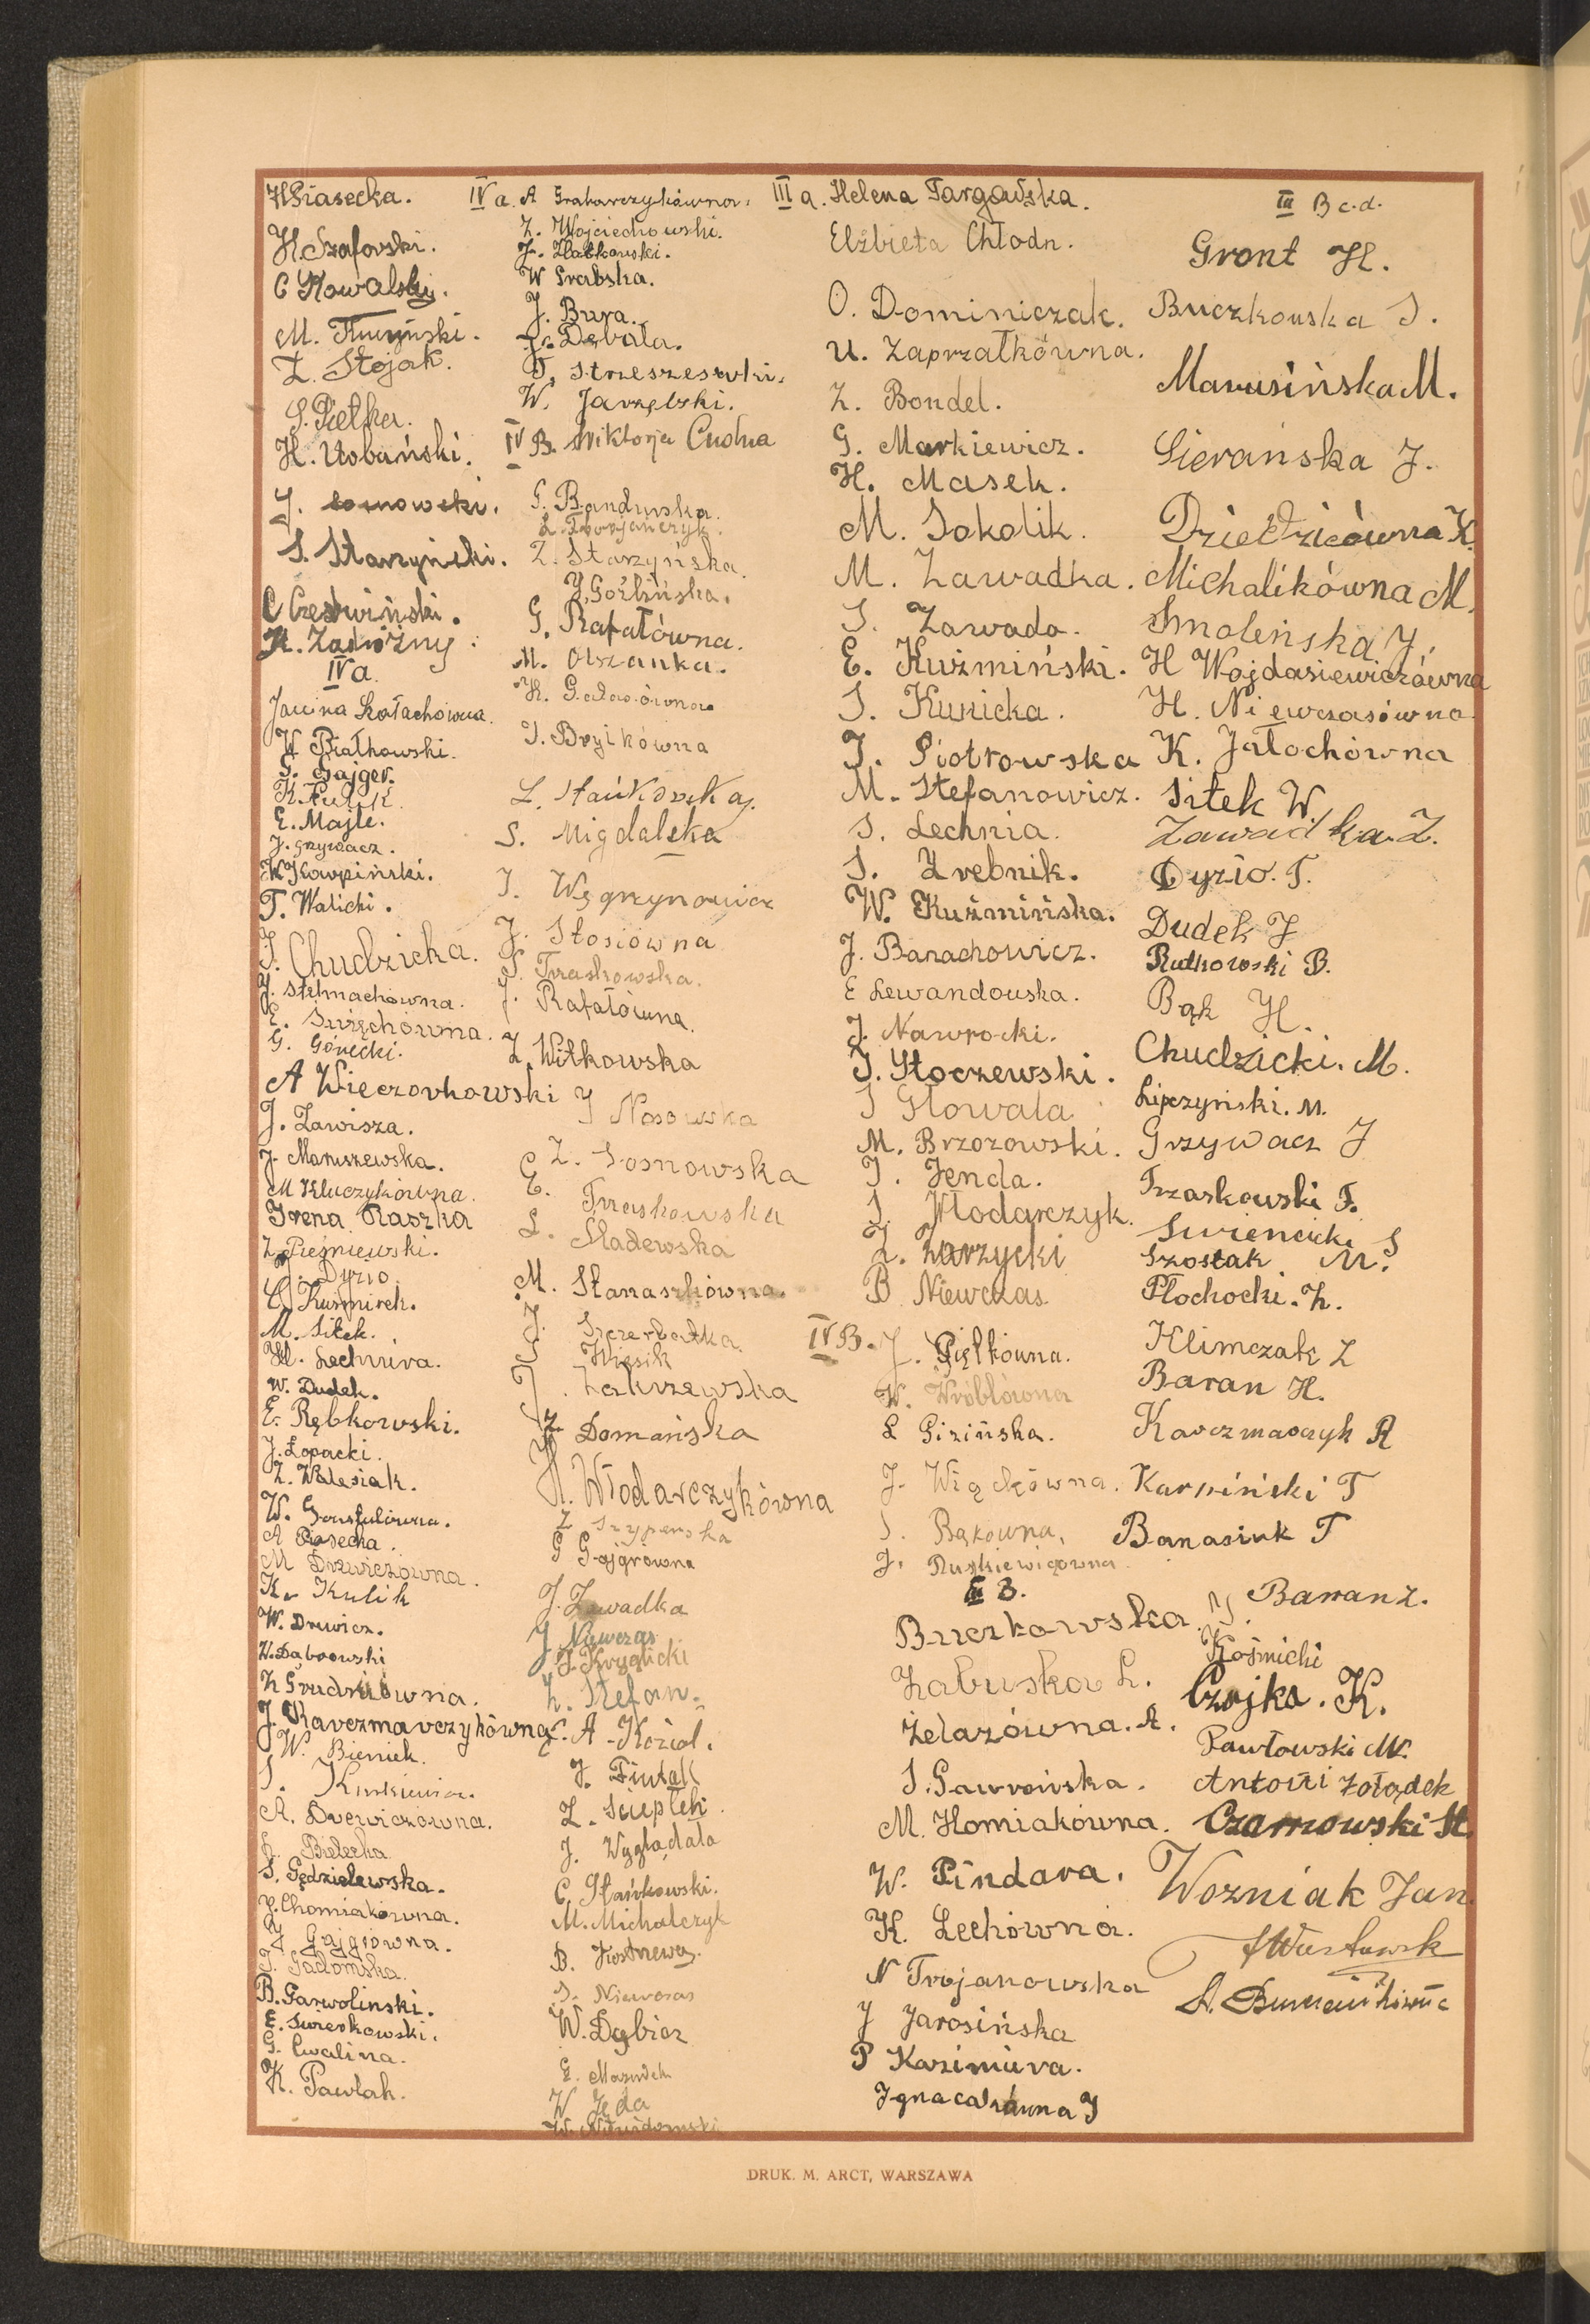 H Piasecka.
H. Szaforski.
C Kowalski.
M.
Z. Stojak.
S. Pietka.
H. Urbański.
J.
S. Starzyński.
C Czerwiński.
K. Zadrożny.
IV a.
Janina Kołachówna.
W Białkowski.
G. Gajger.
K. Kulik.
E. Majle.
J. Grzywacz.
K Karpiński.
T. Walicki.
I. Chudzicka.
J. Stelmachówna.
E. Święchówna.
G. Górecki.
A Wieczorkowski
J. Zawisza.
J. Maruszewska.
M Kluczykówna.
Irena Raszka
Z. Pieśniewski.
J. Dyzio.
C. Kuśmirek.
M. Sitek.
H. Lechnira.
W. Dudek.
E. Rębkowski.
J. Łopacki.
Z. Walesiak.
W.
A Piasecka.
M Drewiczówna.
K. Kulik
W. Drewicz.
W. Dąbrowski
Z Grudniówna.
J. Karczmarczykówna
W. Bieniek.
S.
A. Drewiczówna.
Z. Bielecka
S. Gędzielewska.
J. Chomiakówna.
J Gajgrówna.
J. Sadomska.
B. Garwolinski.
E. Swierkowski.
G. Cwalina.
K. Pawlak.
IV a. A Grabarczykówna.
Z. Wojciechowski.
J.
W Grabska.
J. Bura.
J. Dębala.
T. Strzeszewski.
W. Jarzębski.
IV B. Wiktorja Cudna
G. Bandurska.
L. Trojańczyk.
Z. Starzyńska.
J. Goźlińska.
G. Rafałówna.
M. Olszanka.
K.
I. Bryikówna
L. Stańkowska.
S. Migdalska
J. Węgrzynowicz
J. Stosiówna
S. Traskowska.
J. Rafałówna.
Z. Witkowska
J Nosowska
Z. Sosnowska
E. Trraskowska
L. Sladewska
M. Stanaszkówna.
J. Szczerbatka
J Wiesik
J. Zakrzewska
Z. Domańska
H. Włodarczykówna
Z Szyperska
G Gajgrówna
J. Zawadka
J. Niewczas
J. Kryglicki
Z. Stefan.
C. A. Kozioł.
J. Fintak
Z. Sciepłek
J. Wyglądała
C. Stańkowski.
M. Michalczyk
B.
S. Niewczas
W. Dąbicz
E. Mazurek
W Jęda
W.
III a. Helena Targańska.
Elżbieta Chłodn.
O. Dominiczak.
U. Zaprzałkówna.
Z. Bondel.
G. Markiewicz.
H. Masek.
M. Sokolik.
M. Zawadka.
S. Zawada.
E. Kuźmiński.
S. Kunicka.
J. Piotrowska
M. Stefanowicz.
S. Lechnia.
S. Źrebnik.
W. Kuźmińska.
J. Banachowicz.
E Lewandowska.
J. Nawrocki.
S. Stoczewski.
S Głowala
M. Brzozowski.
J. Jenda.
S. Włodarczyk.
Z. Zarzycki
B Niewczas
IV B. J. Piętkówna.
W. Wróblówna
L Gizińska.
J. Wiąckówna.
S. Bąkówna.
J. Ruskiewiczówna.
III B.
Buczkowska J.
Zabuska L.
Żelazówna. A.
S. Gawrońska.
M. Homiakówna.
W. Pindara.
K. Lechówna.
N Trojanowska
J Jarosińska
P Kazimiera.
Ignacakówna J
III B c.d.
Gront H.
Buczkowska S.
Marusińska M.
Sierańska J.
Dziedzicówna K.
Michalikówna M.
Smoleńska J.
H Wojdasiewiczówna
H. Niewczasówna
K. Jałochówna
Sitek W.
Zawadka Z.
Dyzio. T.
Dudek J
Rutkowski B.
Bąk H.
Chudzicki. M.
Lipczyński. M.
Grzywacz J
Trzaskowski F.
Swiencicki S
Szostak M.
Płochocki. Z.
Klimczak Z
Baran H.
Karczmarczyk R
Karpiński T
Banasiuk T
Baran Z.
Kośmicki
Czajka. K.
Pawłowski M.
Antoni Żołądek
Czarnowski St.
Wozniak Jan.
DRUK. M. ARCT, WARSZAWA